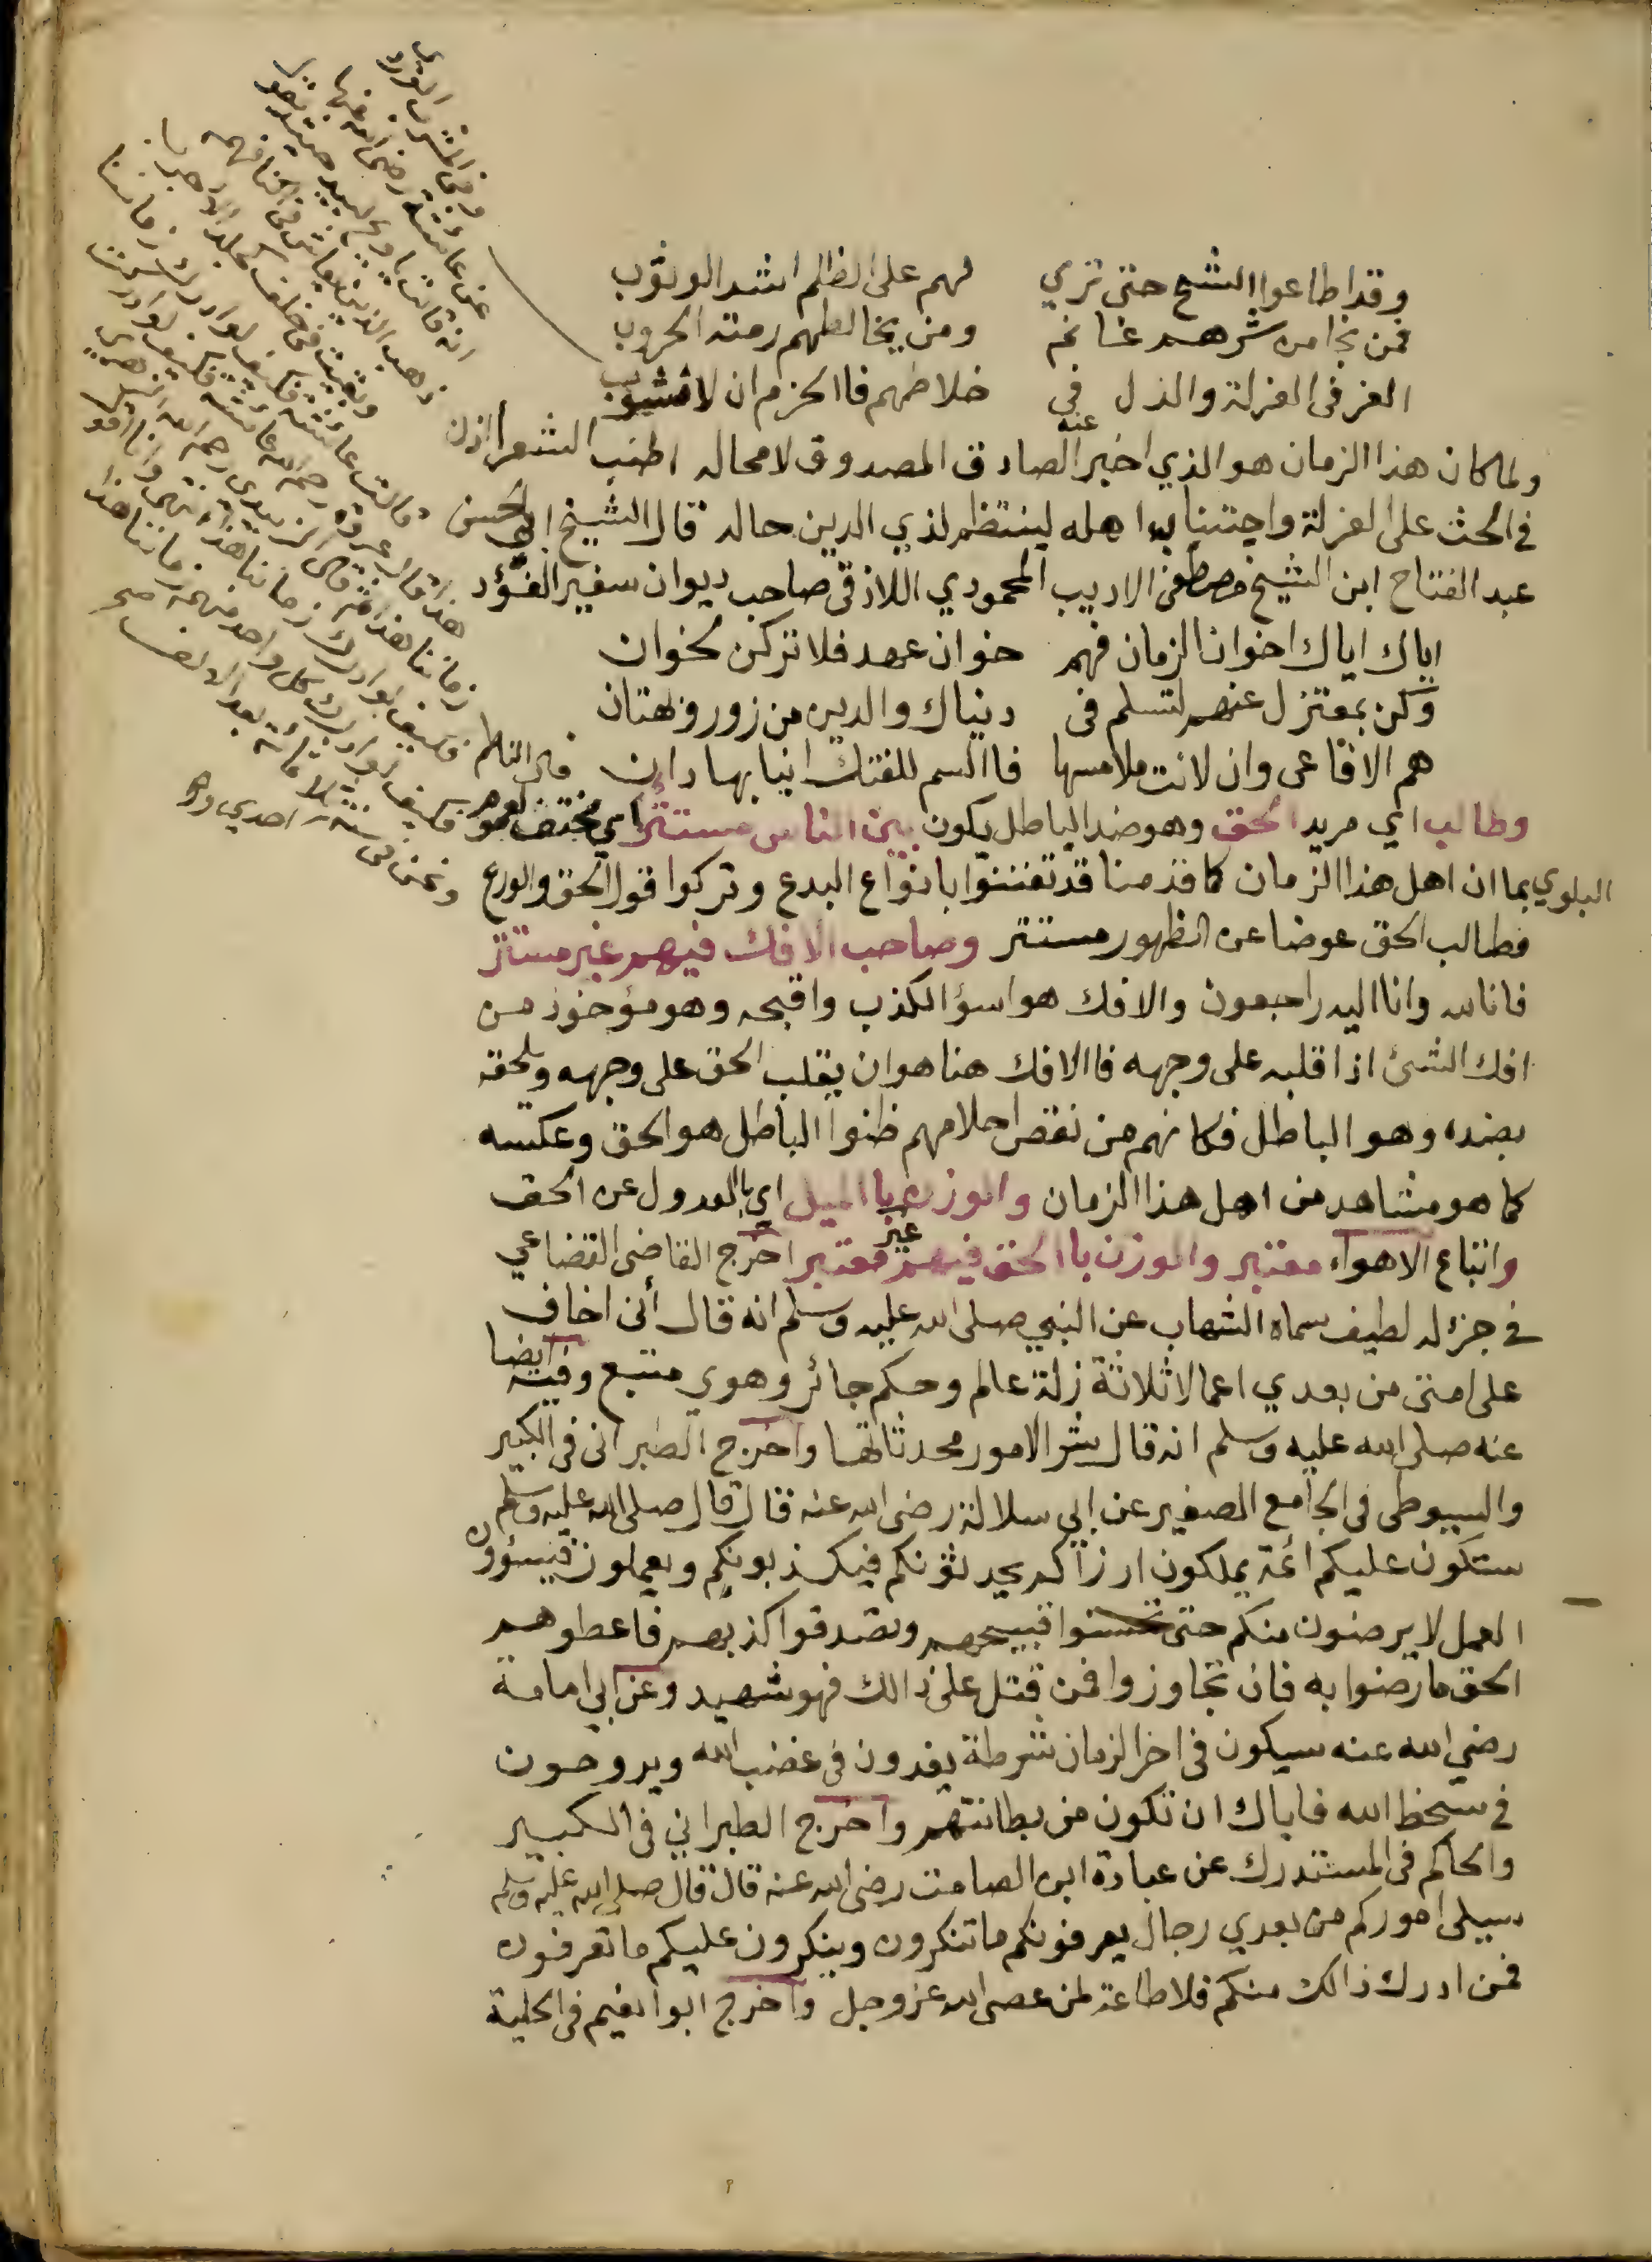 وقد اطاعوا الشح حتى تري لهم على الظلم اشد الوثوب
فمن نجا من شرهم غانم ومن يخالطهم رمته الحروب
العز فى العزلة والذل في خلاطهم فاالحزم ان لا تشوب
ولما كان هذا الزمان هو الذي اخبر عنه الصادق المصدوق لا محاله اطنب الشعرا اذن
في الحث على العزلة واجتناب اهله لينتظم لذي الدين حاله قال الشيخ ابي الحسن
عبد الفتاح ابن الشيخ مصطفى الاديب المحمودي اللاذقى صاحب ديوان سفير الفؤد
اياك اياك اخوان الزمان فهم خوان عهد فلا تركن لخوان
وكن بمعتزل عنهم لتسلم فى دنياك والدين من زور وبهتان
هم الافاعى وان لانت ملامسها فاالسم للفتك انيابها دان قال الناظم
وطالب اي مريد الحق وهو ضد الباطل يكون بين الناس مستتر اي مختف لعموم
البلوي بما ان اهل هذا الزمان كما قدمنا قد تفننوا بانواع البدع وتركوا قول الحق والورع
فطالب الحق عوضا عن الظهور مستتر وصاحب الافك فيهم غير مستتر
فانا لله وانا اليه راجعون والافك هو اسؤ الكذب واقبحه وهو مؤخوذ من
افك الشئ اذا قلبه على وجهه فاالافك هنا هو ان يقلب الحق على وجهه ويلحقه
بضده وهو الباطل فكانهم من نقص احلامهم ظنوا الباطل هو الحق وعكسه
كما هو مشاهد من اهل هذا الزمان والوزن باالميل اي باالعدول عن الحق
واتباع الاهواء معتبر والوزن باالحق فيهم غير معتبر اخرج القاضى القضاعي
في جزء له لطيف سماه الشهاب عن النبي صلى الله عليه وسلم انه قال أنى اخاف
على امتى من بعدي اعمالا ثلاثة زلة عالم وحكم جائر وهوي متبع وفيه ايضا
عنه صلى الله عليه وسلم انه قال شر الامور محدثاتها واخرج الطبرانى فى الكبير
والسيوطى فى الجامع الصغير عن ابي سلالة رضى الله عنه قال قال صلى الله عليه وسلم
ستكون عليكم أئمة يملكون ارزاكم يحدثونكم فيكذبونكم ويعملون فيسؤون
العمل لا يرضون منكم حتى تحسنوا قبيحهم وتصدقوا كذبهم فاعطوهم
الحق ما رضوا به فان تجاوزوا فمن قتل على ذالك فهو شهيد وعن ابي امامة
رضي الله عنه سيكون فى اخر الزمان شرطة يغدون فى غضب الله ويروحون
في سخط الله فاياك ان تكون من بطانتهم واخرج الطبراني فى الكبير
والحاكم فى المستدرك عن عبادة ابن الصامت رضى الله عنه قال قال صلى الله عليه وسلم
سيلى اموركم من بعدي رجال يعرفونكم ما تنكرون وينكرون عليكم ما تعرفون
فمن ادرك ذالك منكم فلا طاعة لمن عصى الله عز وجل واخرج ابوا نعيم فى الحلية
عن عائشة رضى الله عنها
انه قالت يا ويح لبيد حيث يقول
ذهب الذين يعاش فى اكنافهم
وبقيت فى خلف كجلد الاجرب
قالت عائشة فكيف لو ادرك زماننا
هذا قال عروة رحم الله عائشة فكيف لو ادركت
زماننا هذا ثم قال الزهري رحم الله
فكيف لو ادرك زماننا هذا انتهى وانا اقول
فكيف لو ادرك كل واحد منهم زماننا هذا
ونحن فى سنة